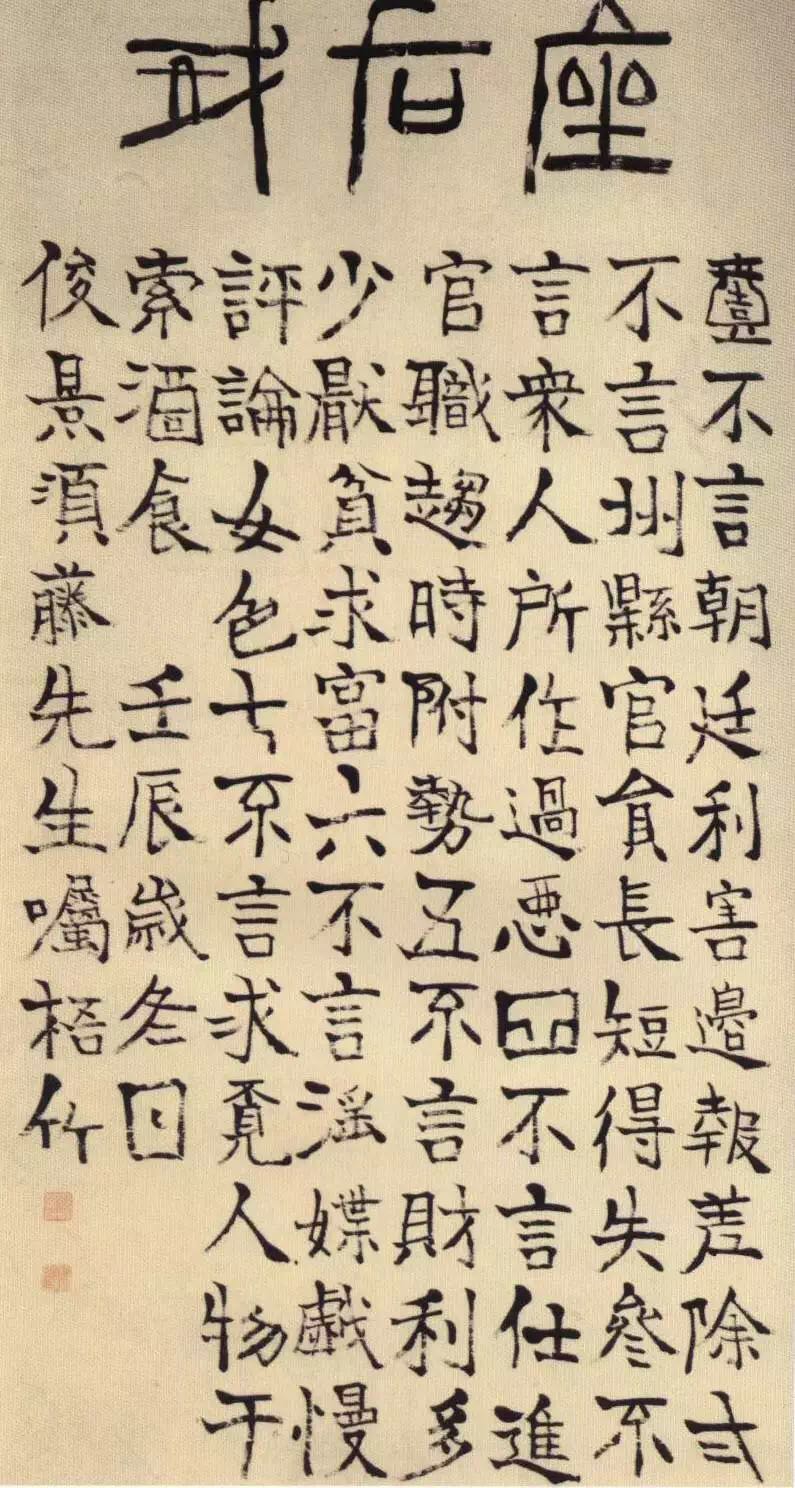 座右戒
壹不言朝廷利害邊報差除弍
不言州縣官員長短得失參不
言衆人所作過惡四不言仕進
官職趨時附勢五不言財利多
少厭貧求富六不言淫媟戲慢
評論女色七不言求覓人物干
索酒食 壬辰歲冬日
俊景須藤先生囑梧竹